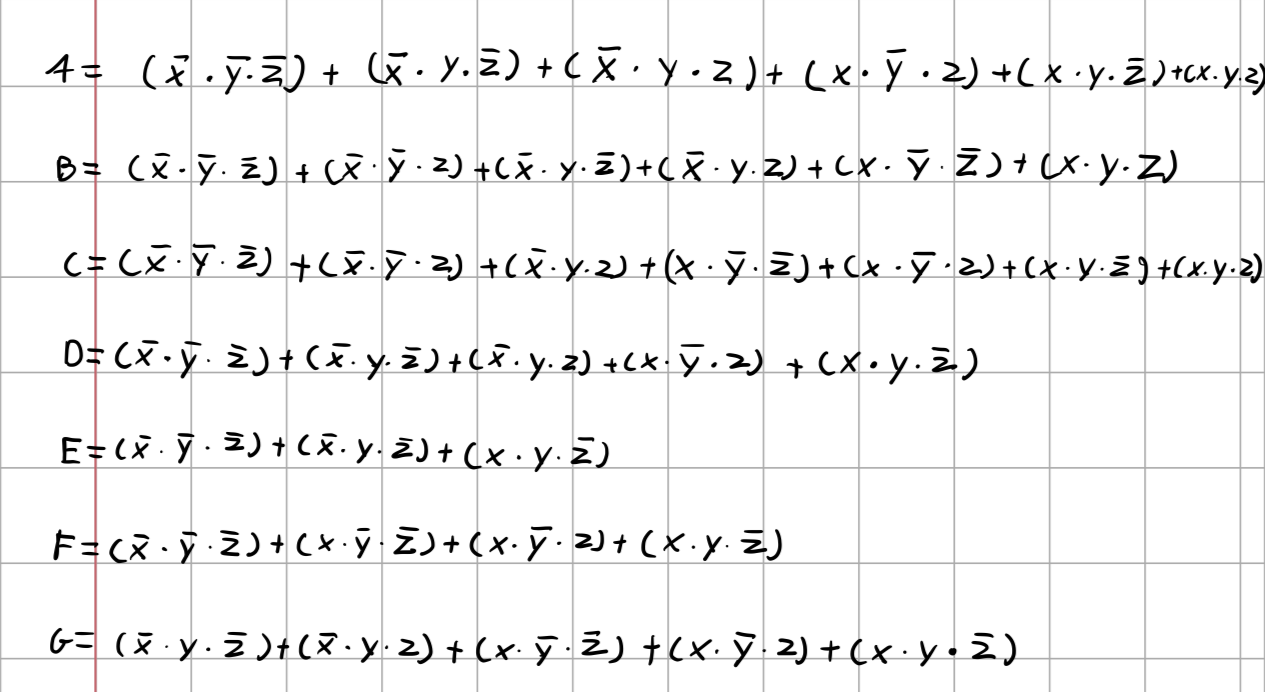 A= (x̄ · ȳ · z̄) + (x̄ · y · z̄) + (x̄ · y · z) + (x · ȳ · z) + (x · y · z̄) + (x · y · z)
B= (x̄ · ȳ · z̄) + (x̄ · ȳ · z) + (x̄ · y · z̄) + (x̄ · y · z) + (x · ȳ · z̄) + (x · y · z)
C= (x̄ · ȳ · z̄) + (x̄ · ȳ · z) + (x̄ · y · z) + (x · ȳ · z̄) + (x · ȳ · z) + (x · y · z̄) + (x · y · z)
D= (x̄ · ȳ · z̄) + (x̄ · y · z̄) + (x̄ · y · z) + (x · ȳ · z) + (x · y · z̄)
E= (x̄ · ȳ · z̄) + (x̄ · y · z̄) + (x · y · z̄)
F= (x̄ · ȳ · z̄) + (x · ȳ · z̄) + (x · ȳ · z) + (x · y · z̄)
G= (x̄ · y · z̄) + (x̄ · y · z) + (x · ȳ · z̄) + (x · ȳ · z) + (x · y · z̄)